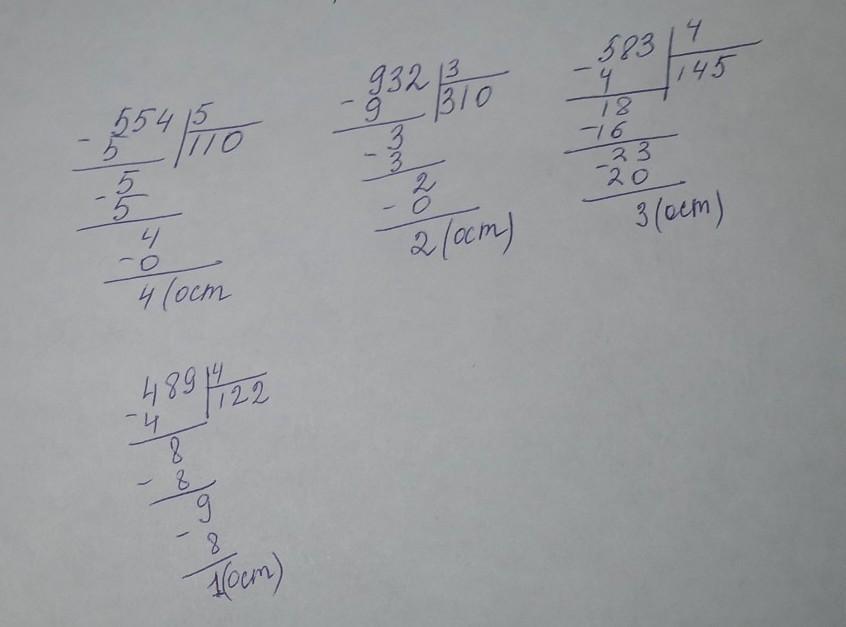 554 5
- 5 110
5
- 5
4
- 0
4 (ост
932 3
- 9 310
3
- 3
2
- 0
2 (ост)
- 583 4
4 145
18
- 16
- 23
20
3 (ост)
489 4
- 4 122
8
- 8
9
- 8
1(ост)